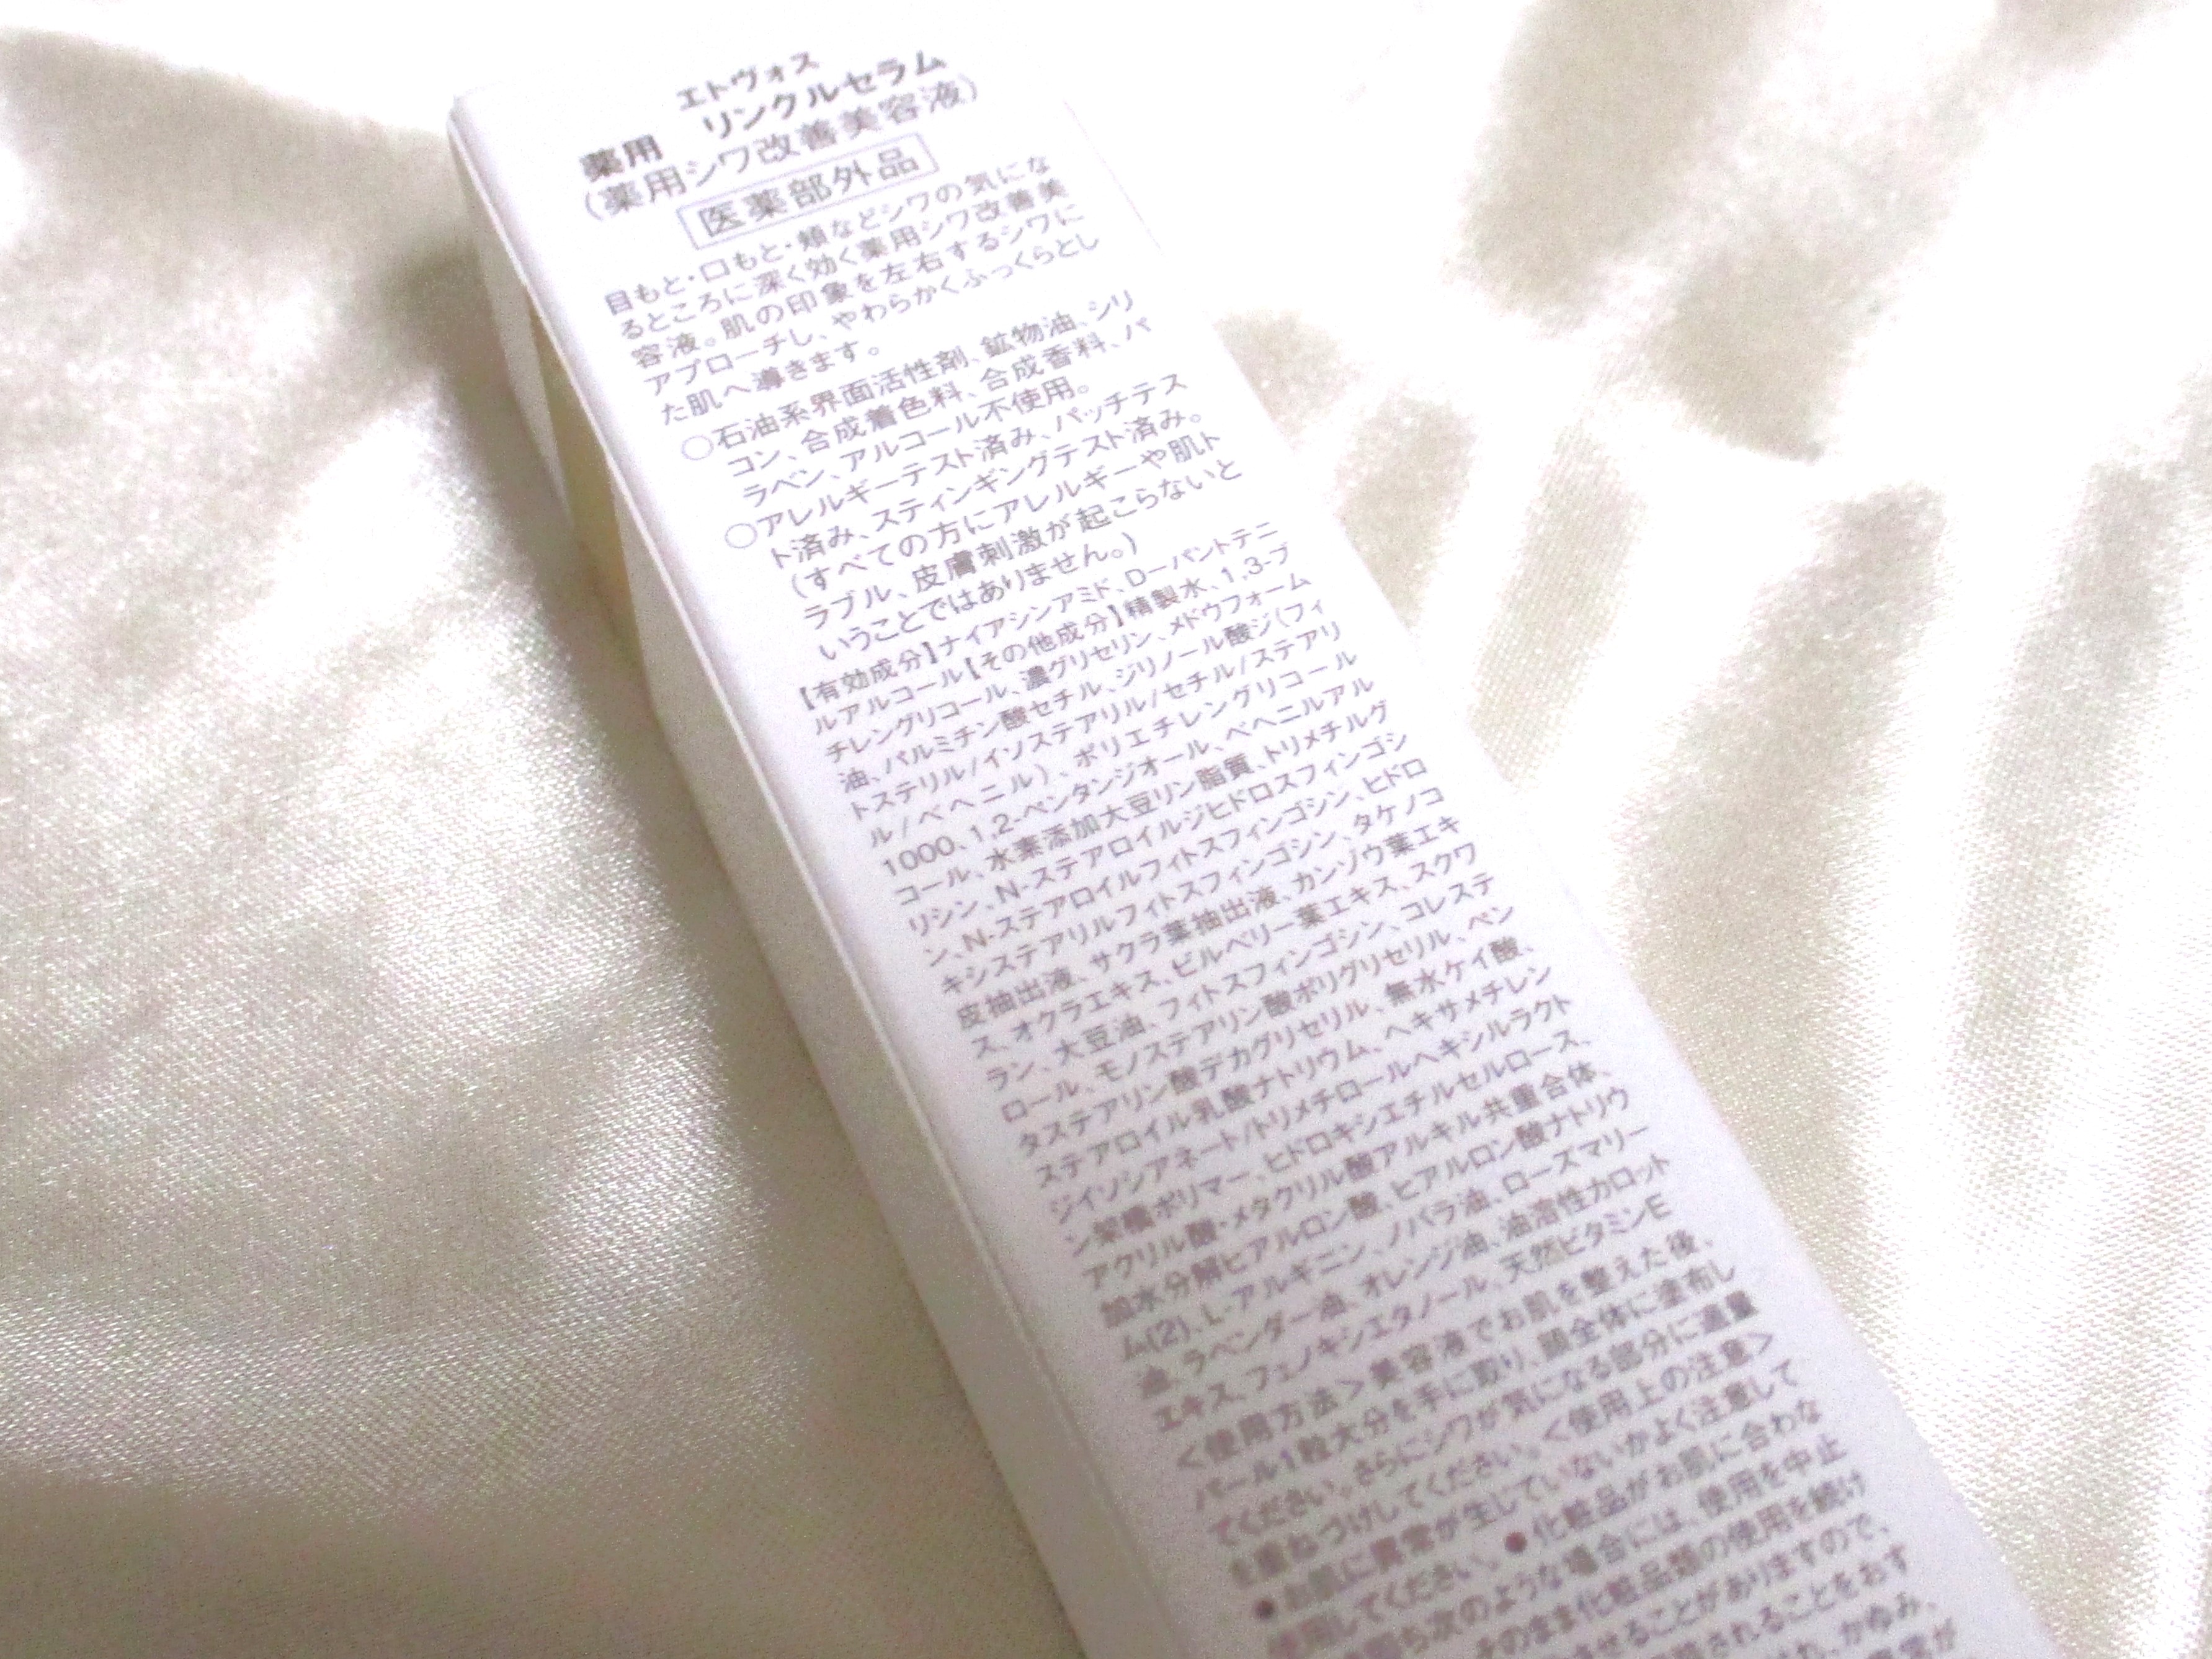 エトヴォス
薬用 リンクルセラム
(薬用シワ改善美容液)
医薬部外品
目もと・口もと・頬などシワの気にな
るところに深く効く薬用シワ改善美
容液。肌の印象を左右するシワに
アプローチし、やわらかくふっくらとし
た肌へ導きます。
○石油系界面活性剤、鉱物油、シリ
コン、合成着色料、合成香料、パ
ラベン、アルコール不使用。
○アレルギーテスト済み、パッチテス
ト済み、スティンギングテスト済み。
(すべての方にアレルギーや肌ト
ラブル、皮膚刺激が起こらないと
いうことではありません。)
【有効成分】ナイアシンアミド、D-パントテニ
ルアルコール【その他成分】精製水、1,3-ブ
チレングリコール、濃グリセリン、メドウフォーム
油、パルミチン酸セチル、ジリノール酸ジ(フィ
トステリル/イソステアリル/セチル/ステアリ
ル/ベヘニル)、ポリエチレングリコール
1000、1,2-ペンタンジオール、ベヘニルアル
コール、水素添加大豆リン脂質、トリメチルグ
リシン、N-ステアロイルジヒドロスフィンゴシ
ン、N-ステアロイルフィトスフィンゴシン、ヒドロ
キシステアリルフィトスフィンゴシン、タケノコ
皮抽出液、サクラ葉抽出液、カンゾウ葉エキ
ス、オクラエキス、ビルベリー葉エキス、スクワ
ラン、大豆油、フィトスフィンゴシン、コレステ
ロール、モノステアリン酸ポリグリセリル、ペン
タステアリン酸デカグリセリル、無水ケイ酸、
ステアロイル乳酸ナトリウム、ヘキサメチレン
ジイソシアネート/トリメチロールヘキシルラクト
ン架橋ポリマー、ヒドロキシエチルセルロース、
アクリル酸・メタクリル酸アルキル共重合体、
加水分解ヒアルロン酸、ヒアルロン酸ナトリウ
ム(2)、L-アルギニン、ノバラ油、ローズマリー
油、ラベンダー油、オレンジ油、油溶性カロット
エキス、フェノキシエタノール、天然ビタミンE
＜使用方法＞美容液でお肌を整えた後、
パール1粒大分を手に取り、顔全体に塗布し
てください。さらにシワが気になる部分に適量
を重ねづけしてください。＜使用上の注意＞
●お肌に異常が生じていないかよく注意して
使用してください。●化粧品がお肌に合わな
次のような場合には、使用を中止
そのまま化粧品類の使用を続け
させることがありますので、
されることをおす
かゆみ、
異常が